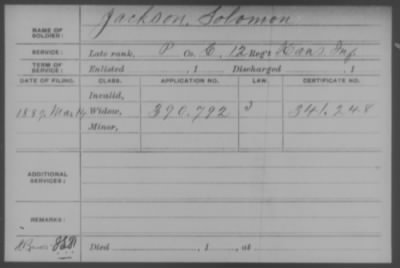 Jackson, Solomon
NAME OF SOLDIER:
SERVICE: Late rank, P Co. C, 12 Reg't Kans. Inf
TERM OF SERVICE: Enlisted , 1 Discharged , 1
DATE OF FILING. CLASS. APPLICATION NO. LAW. CERTIFICATE NO.
Invalid,
1889. Mar 14 Widow, 390.792 3 341.248
Minor,
ADDITIONAL SERVICES:
REMARKS:
Died , 1 , at